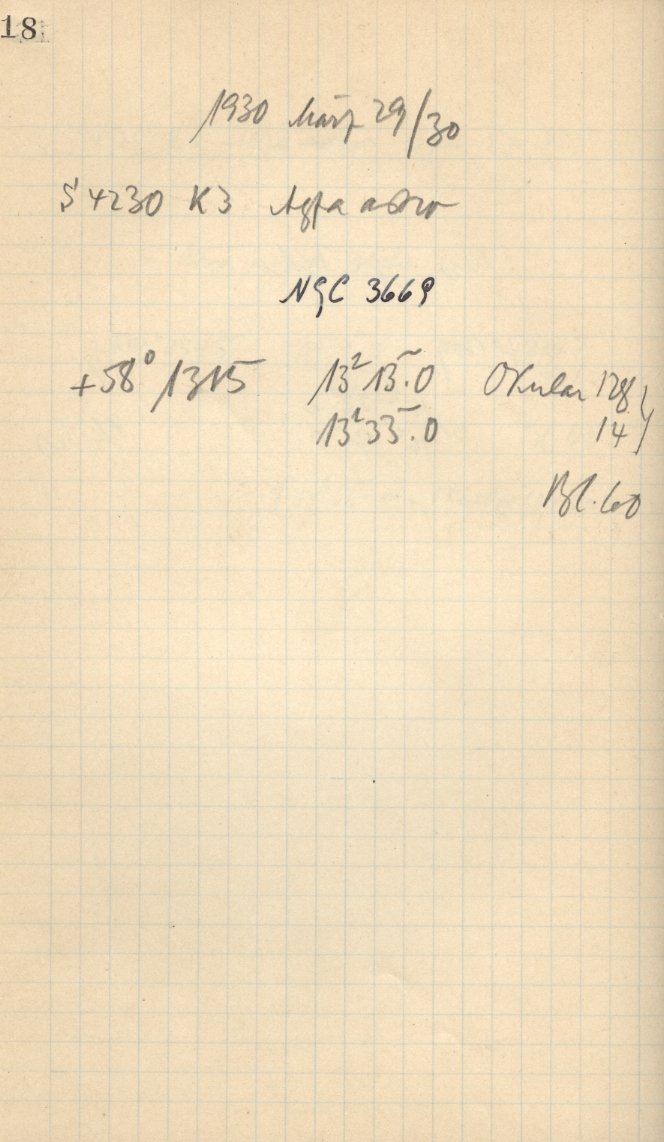 18
1930 März 29/30
S 4230 K3 Agfa astro
NGC 3669
+58° 1315 13ʰ 15ᵐ.0 Okular 128
13ʰ 33ᵐ.0 14
Bl. 60